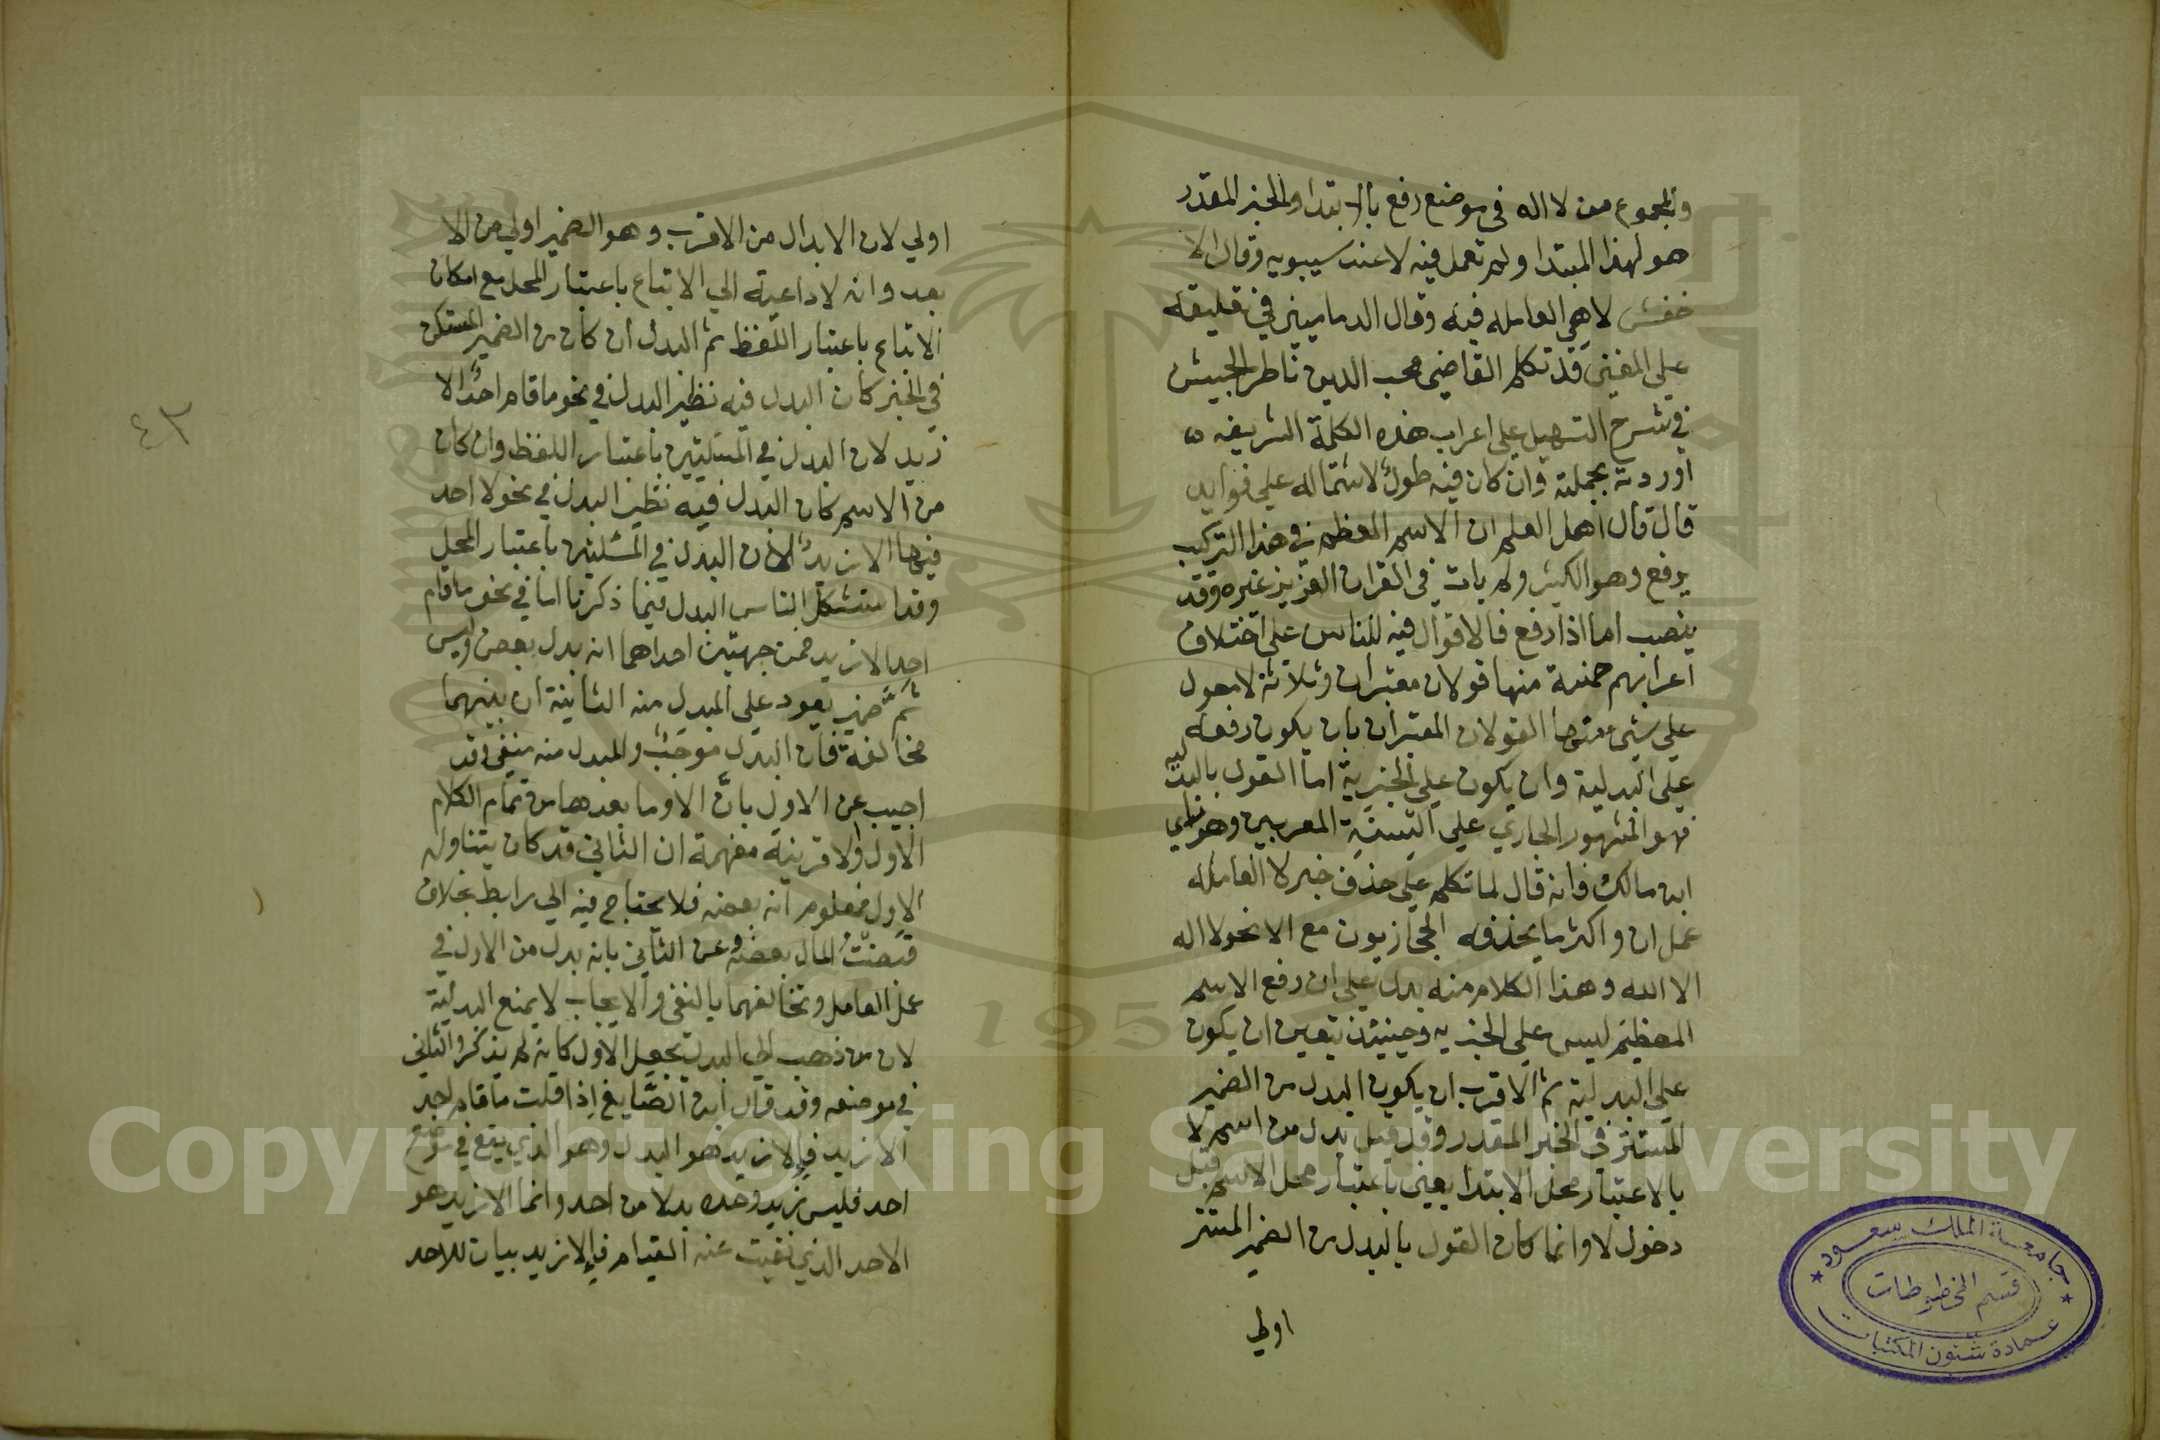 والمجموع من لا اله في موضع رفع بالابتدا والخبر المقدر
هو لهذا المبتدا ولم تعمل فيه لا عند سيبويه وقال الا
خفش لا هي العامله فيه وقال الدماميني في تعليقه
علي المغني قد تكلم القاضي محب الدين ناظر الجيش
في شرح التسهيل علي اعراب هذه الكلمة الشريفه
اوردته بجملته وان كان فيه طول لاشتماله علي فوايد
قال قال اهل العلم ان الاسم المعظم في هذا التركيب
يرفع وهو الكثير ولم يات في القران العزيز غيره وقد
ينصب اما اذا رفع فالاقوال فيه للناس علي اختلاف
اعرابهم خمسة منها قولان معتبران وثلاثة لا معول
علي شي منها القولان المعتبران بان يكون رفعه
علي البدلية وان يكون علي الخبرية اما القول بالبدليه
فهو المشهور الجاري علي السنة المعربين وهو راي
ابن مالك فانه قال لما تكلم علي حذف خبر لا العامله
عمل ان واكثر ما يحذفه الحجازيون مع الا نحو لا اله
الا الله وهذا الكلام منه يدل علي ان رفع الاسم
المعظيم ليس علي الخبريه وحينيذ يتعين ان يكون
علي البدلية ثم الاقرب ان يكون البدل من الضمير
المستتر في الخبر المقدر وقد قيل بدل من اسم لا
بالاعتبار محل الابتدا يعني باعتبار محل الاسم قبل
دخول لا وانما كان القول بالبدل من الضمير المستتر
اولي
اولي لان الابدال من الاقرب وهو الضمير اولي من الا
بعد وانه لا داعية الي الاتباع باعتبار المحل مع امكان
الاتباع باعتبار اللفظ ثم البدل ان كان من الضمير المستكن
في الخبر كان البدل فيه نظير البدل في نحو ما قام احد الا
زيد لان البدل في المسئلتين باعتبار اللفظ وان كان
من الاسم كان البدل فيه نظير البدل في نحو لا احد
فيها الا زيد لان البدل في المسئلتين باعتبار المحل
وقد استشكل الناس البدل فيما ذكرنا اما في نحو ما قام
احد الا زيد فمن جهتين احداهما انه بدل بعض وليس
ثم ضمير يعود علي المبدل منه الثانية ان بينهما
مخالفة فان البدل موجب والمبدل منه منفي وقد
اجيب عن الاول بان الا وما بعدها من تمام الكلام
الاول والا قرينة مفهمة ان الثاني قد كان يتناوله
الاول فمعلوم انه بعضه فلا يحتاج فيه الي رابط بخلاف
قبضت المال بعضه وعن الثاني بانه بدل من الاول في
عمل العامل وتخالفهما بالنفي والايجاب لا يمنع البدلية
لان من ذهب الي البدل يجعل الاول كانه لم يذكر والثاني
في موضعه وقد قال ابن الصايغ اذا قلت ما قام احد
الا زيد فإلا زيد هو البدل وهو الذي يقع في موضع
احد فليس زيد وحده بدلا من احد وانما الا زيد هو
الاحد الذي نفيت عنه القيام فإلا زيد بيان للاحد
٤٣
جامعة الملك سعود
قسم المخطوطات
عمادة شئون المكتبات
1957
Copyright © King Saud University